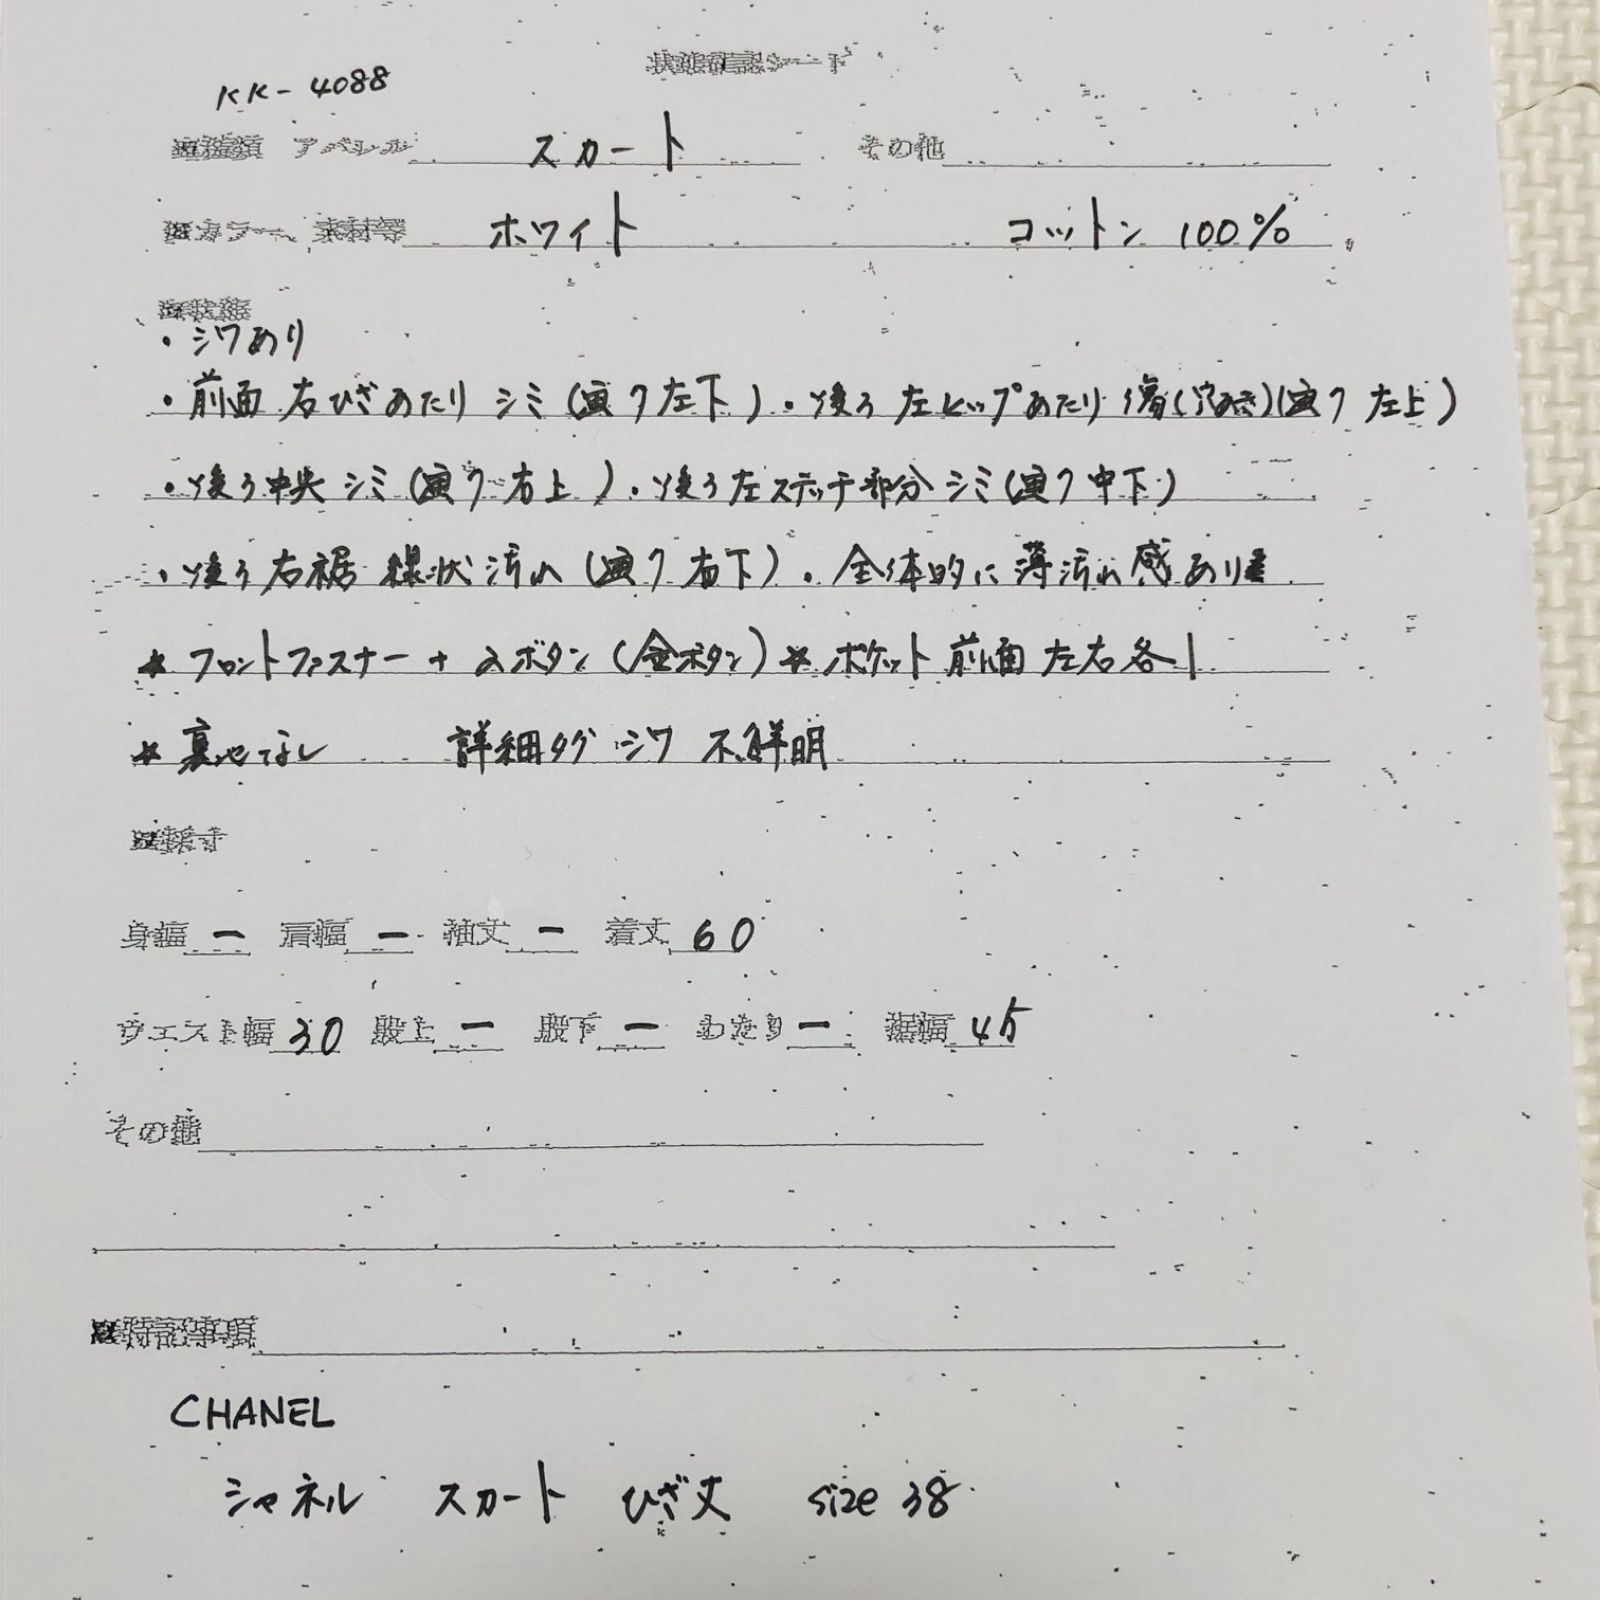 状態確認シート
KK-4088
アパレル スカート その他
カラー、素材等 ホワイト コットン 100%
・シワあり
・前面 右ひざあたり シミ(寅ク左下)・後ろ 左ヒップあたり 傷(穴あき)(寅ク 左上)
・後ろ中央 シミ(寅ク 右上)・後ろ左ステッチ部分 シミ(寅ク 中下)
・後ろ右裾 線状汚れ(寅ク 右下)・全体的に薄汚れ感あり
* フロントファスナー + 2ボタン(金ボタン) * ポケット 前面 左右各1
* 裏地なし 詳細タグ シワ 不鮮明
■採寸
身幅 ー 肩幅 ー 袖丈 ー 着丈 60
ウエスト幅 30 股上 ー 股下 ー わたり ー 裾幅 45
その他
特記事項
CHANEL
シャネル スカート ひざ丈 size 38